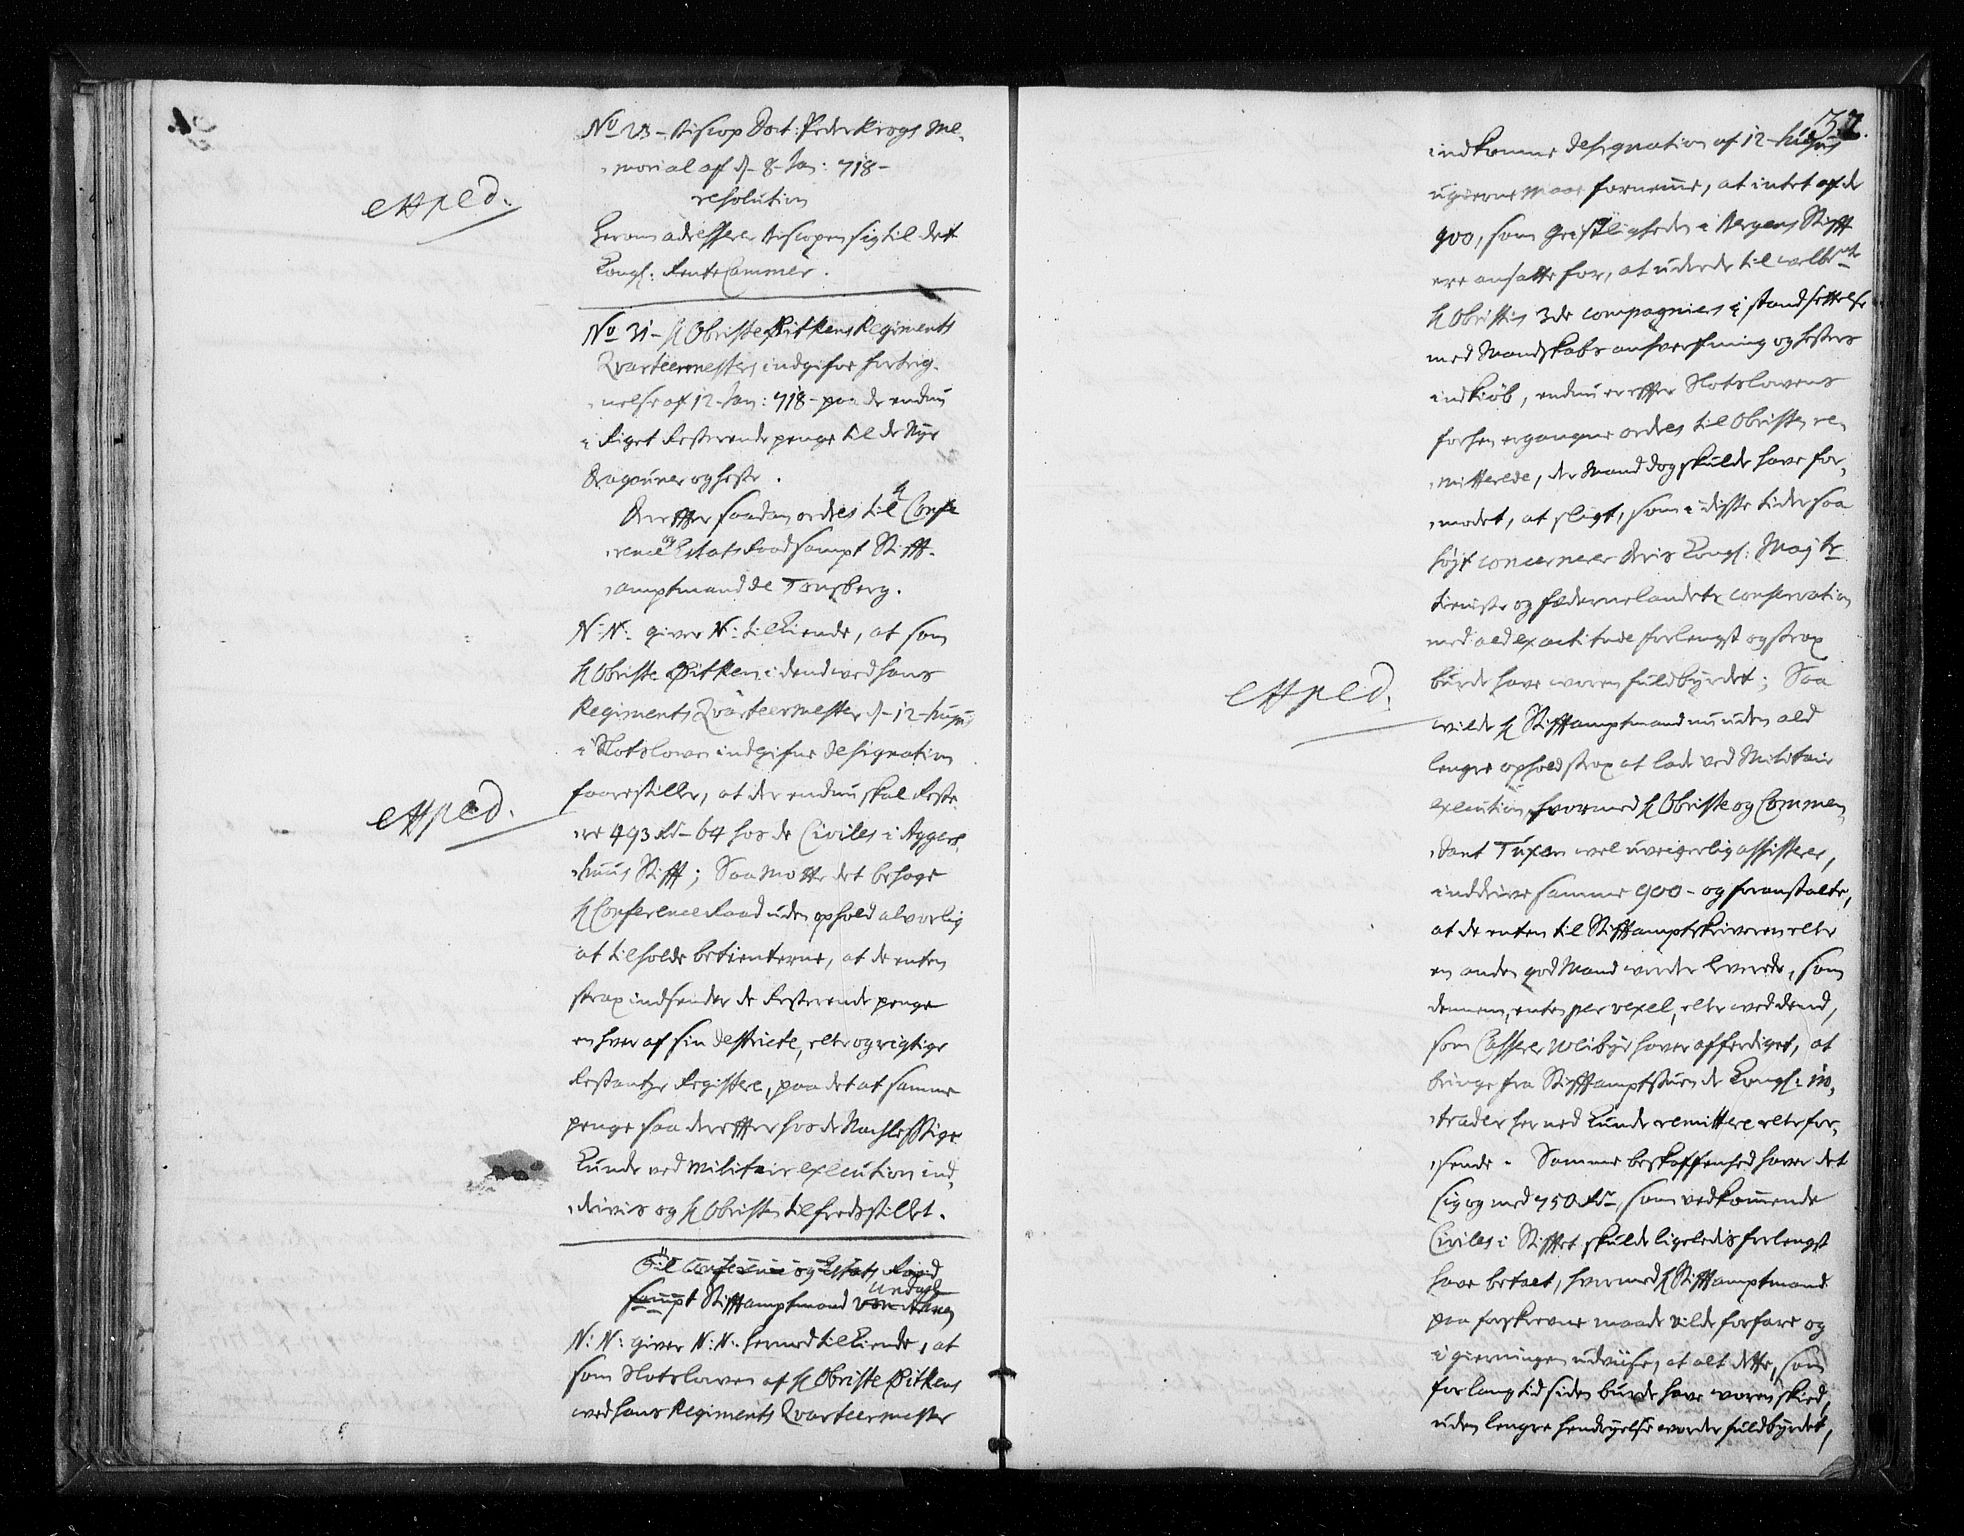 No 23 - Biscop Doct: Peder Krogs Me-
morial af d. 8 - Jan: 718 -
resolution
exped.
herom adresserer Biscopen sig til det
Kongl: Rente Cammer.
No 31 - H Obriste Øitkens Regiments
Qvarteermesters indgifne forteig-
nelse af 12 - Jan: 718 - paa de endnu
i Riget Resterende penge til de Nye
Dragouner og heste.
Derefter saadan ordres til H Confe
rence og Estats Raad sampt Stift-
amptmand de Tonsberg.
N: N: giver N: tilkiende, at som
H Obriste Øitken i dend ved hans
Regiments Qvarteermester d. 12 - hujus
i Slotsloven indgifne designation
foorestiller, at der endnu skal Reste-
exped.
re 493 Rd - 64 hos de Civiles i Aggers-
huus Stift; Saa Motte det behage
H Conference Raad uden ophold alvorlig
at tilholde betienterne, at de enten
strax indsender de Resterende penge
en hver af sin destricte, eller og rigtige
Restantze Registere, paa det at samme
penge saa derefter hos de Nachlessige
Kunde ved Militair execution ind-
drivis og H Obristen tilfredsstillet.
Til Conference og Estats Raad
Undal
sampt Stiftamptmand von Ahnen
N: N: giver N: N: hermed tilkiende, at
som Slotsloven af H Obriste Øitkens
ved hans Regiments Qvarteermester
37.
indkomne designation af 12 - hujus
ugierne maae fornemme, at intet af de
900, som Geistligheden i Bergens Stift
ere ansatte for, at udrede til velbte
H Obristis 3de compagniers i standsettelse
med Mandskabs anhverfning og hesters
indkiøb, endnu er efter Slotslovens
forhen ergangne ordres til Obristen re-
mitterede, der Mand dog skulde have for-
modet, at sligt, som i disse tider saa
høyt concernerer deris Kongl: Mayts
tieniste og fædernelandets conservation
med ald exactitude forlengst og strax
burde have voren fuldbyrdet; Saa
exped.
vilde H Stiftamptmand nu uden ald
lengre ophold strax at lade ved Militair
execution, hvormed H Obriste og Commen-
dant Tuxen vel uveigerlig assisterer,
inddrive samme 900 - og foranstalte,
at de enten til Stiftamptskriveren eller
en anden god Mand vorder leverede, som
dennem, enten per vexel, eller ved dend,
som Casserer Weibye haver afferdiget, at
bringe fra Stiftamptstuen de Kongl: in-
trader herned kunde remittere eller for-
sende. Samme beskaffenhed haver det
sig og med 750 Rdr, som vedkommende
Civiles i Stiftet skulde ligeledis forlengst
have betalt, hvormed H Stiftamptmand
paa forskrevne maade vilde forfare og
i gierningen udviise, at alt dette, som
for lang tid siden burde have voren skied,
uden lengre hendryelse vorder fuldbyrdet,